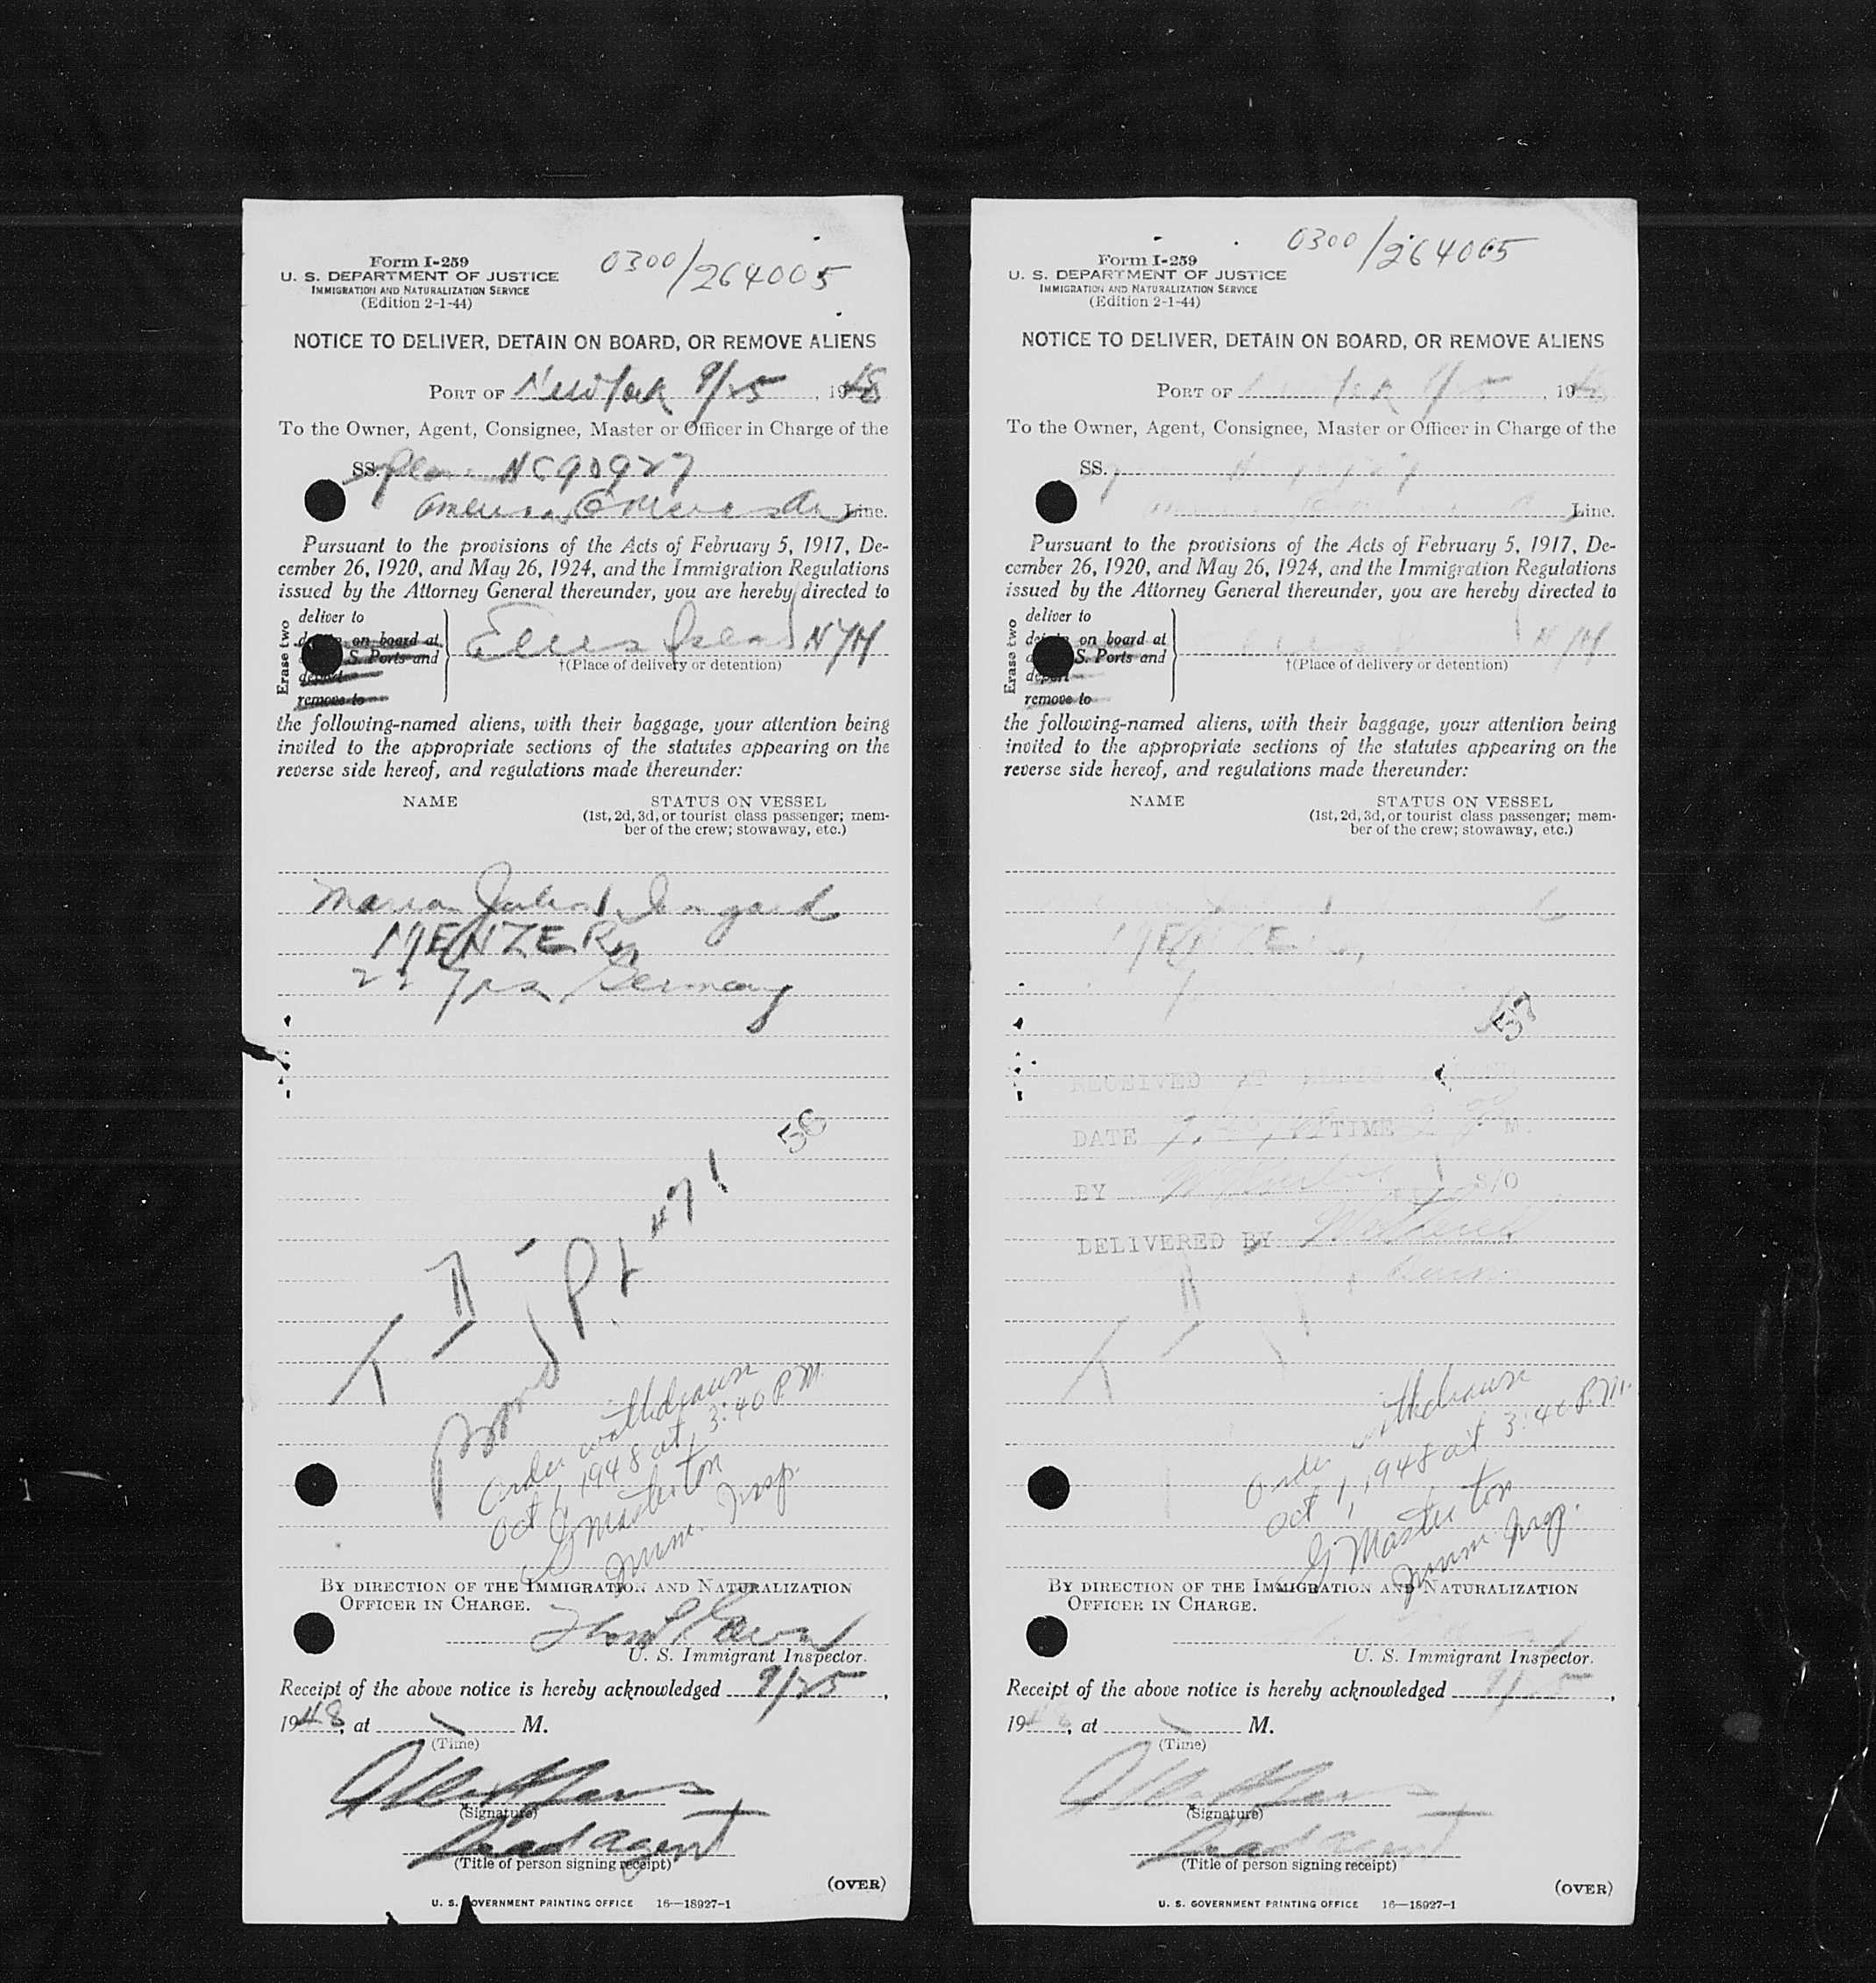 Form I-259
U. S. DEPARTMENT OF JUSTICE
IMMIGRATION AND NATURALIZATION SERVICE
(Edition 2-1-44)
0300/264005
NOTICE TO DELIVER, DETAIN ON BOARD, OR REMOVE ALIENS
PORT OF New York 9/25, 1948
To the Owner, Agent, Consignee, Master or Officer in Charge of the
SS. Plane NC90927
American Overseas Air Line.
Pursuant to the provisions of the Acts of February 5, 1917, De-
cember 26, 1920, and May 26, 1924, and the Immigration Regulations
issued by the Attorney General thereunder, you are hereby directed to
Erase two
deliver to
on board at
S. Ports and
deport
remove to
Ellis Island NYH
†(Place of delivery or detention)
the following-named aliens, with their baggage, your attention being
invited to the appropriate sections of the statutes appearing on the
reverse side hereof, and regulations made thereunder:
NAME
STATUS ON VESSEL
(1st, 2d, 3d, or tourist class passenger; mem-
ber of the crew; stowaway, etc.)
MENZER
22 yrs, Germany
56
P.t #7
Order withdrawn
Oct 1, 1948 at 3:40 P.M.
G Masterton
Imm. Insp.
BY DIRECTION OF THE IMMIGRATION AND NATURALIZATION
OFFICER IN CHARGE.
U. S. Immigrant Inspector.
Receipt of the above notice is hereby acknowledged 9/25,
1948, at M.
(Time)
(Signature)
Agent
(Title of person signing receipt)
(OVER)
U. S. GOVERNMENT PRINTING OFFICE 16—18927-1
Form I-259
U. S. DEPARTMENT OF JUSTICE
IMMIGRATION AND NATURALIZATION SERVICE
(Edition 2-1-44)
0300/264005
NOTICE TO DELIVER, DETAIN ON BOARD, OR REMOVE ALIENS
PORT OF 9/25, 194
To the Owner, Agent, Consignee, Master or Officer in Charge of the
SS.
Line.
Pursuant to the provisions of the Acts of February 5, 1917, De-
cember 26, 1920, and May 26, 1924, and the Immigration Regulations
issued by the Attorney General thereunder, you are hereby directed to
Erase two
deliver to
on board at
S. Ports and
deport
remove to
†(Place of delivery or detention)
the following-named aliens, with their baggage, your attention being
invited to the appropriate sections of the statutes appearing on the
reverse side hereof, and regulations made thereunder:
NAME
STATUS ON VESSEL
(1st, 2d, 3d, or tourist class passenger; mem-
ber of the crew; stowaway, etc.)
MENZE
57
RECEIVED AT ELLIS ISLAND
DATE TIME M.
BY S/O
DELIVERED BY
Order withdrawn
Oct 1, 1948 at 3:40 P.M.
G Masterton
Imm Insp.
BY DIRECTION OF THE IMMIGRATION AND NATURALIZATION
OFFICER IN CHARGE.
U. S. Immigrant Inspector.
Receipt of the above notice is hereby acknowledged 9/25,
1948, at M.
(Time)
(Signature)
Agent
(Title of person signing receipt)
(OVER)
U. S. GOVERNMENT PRINTING OFFICE 16—18927-1